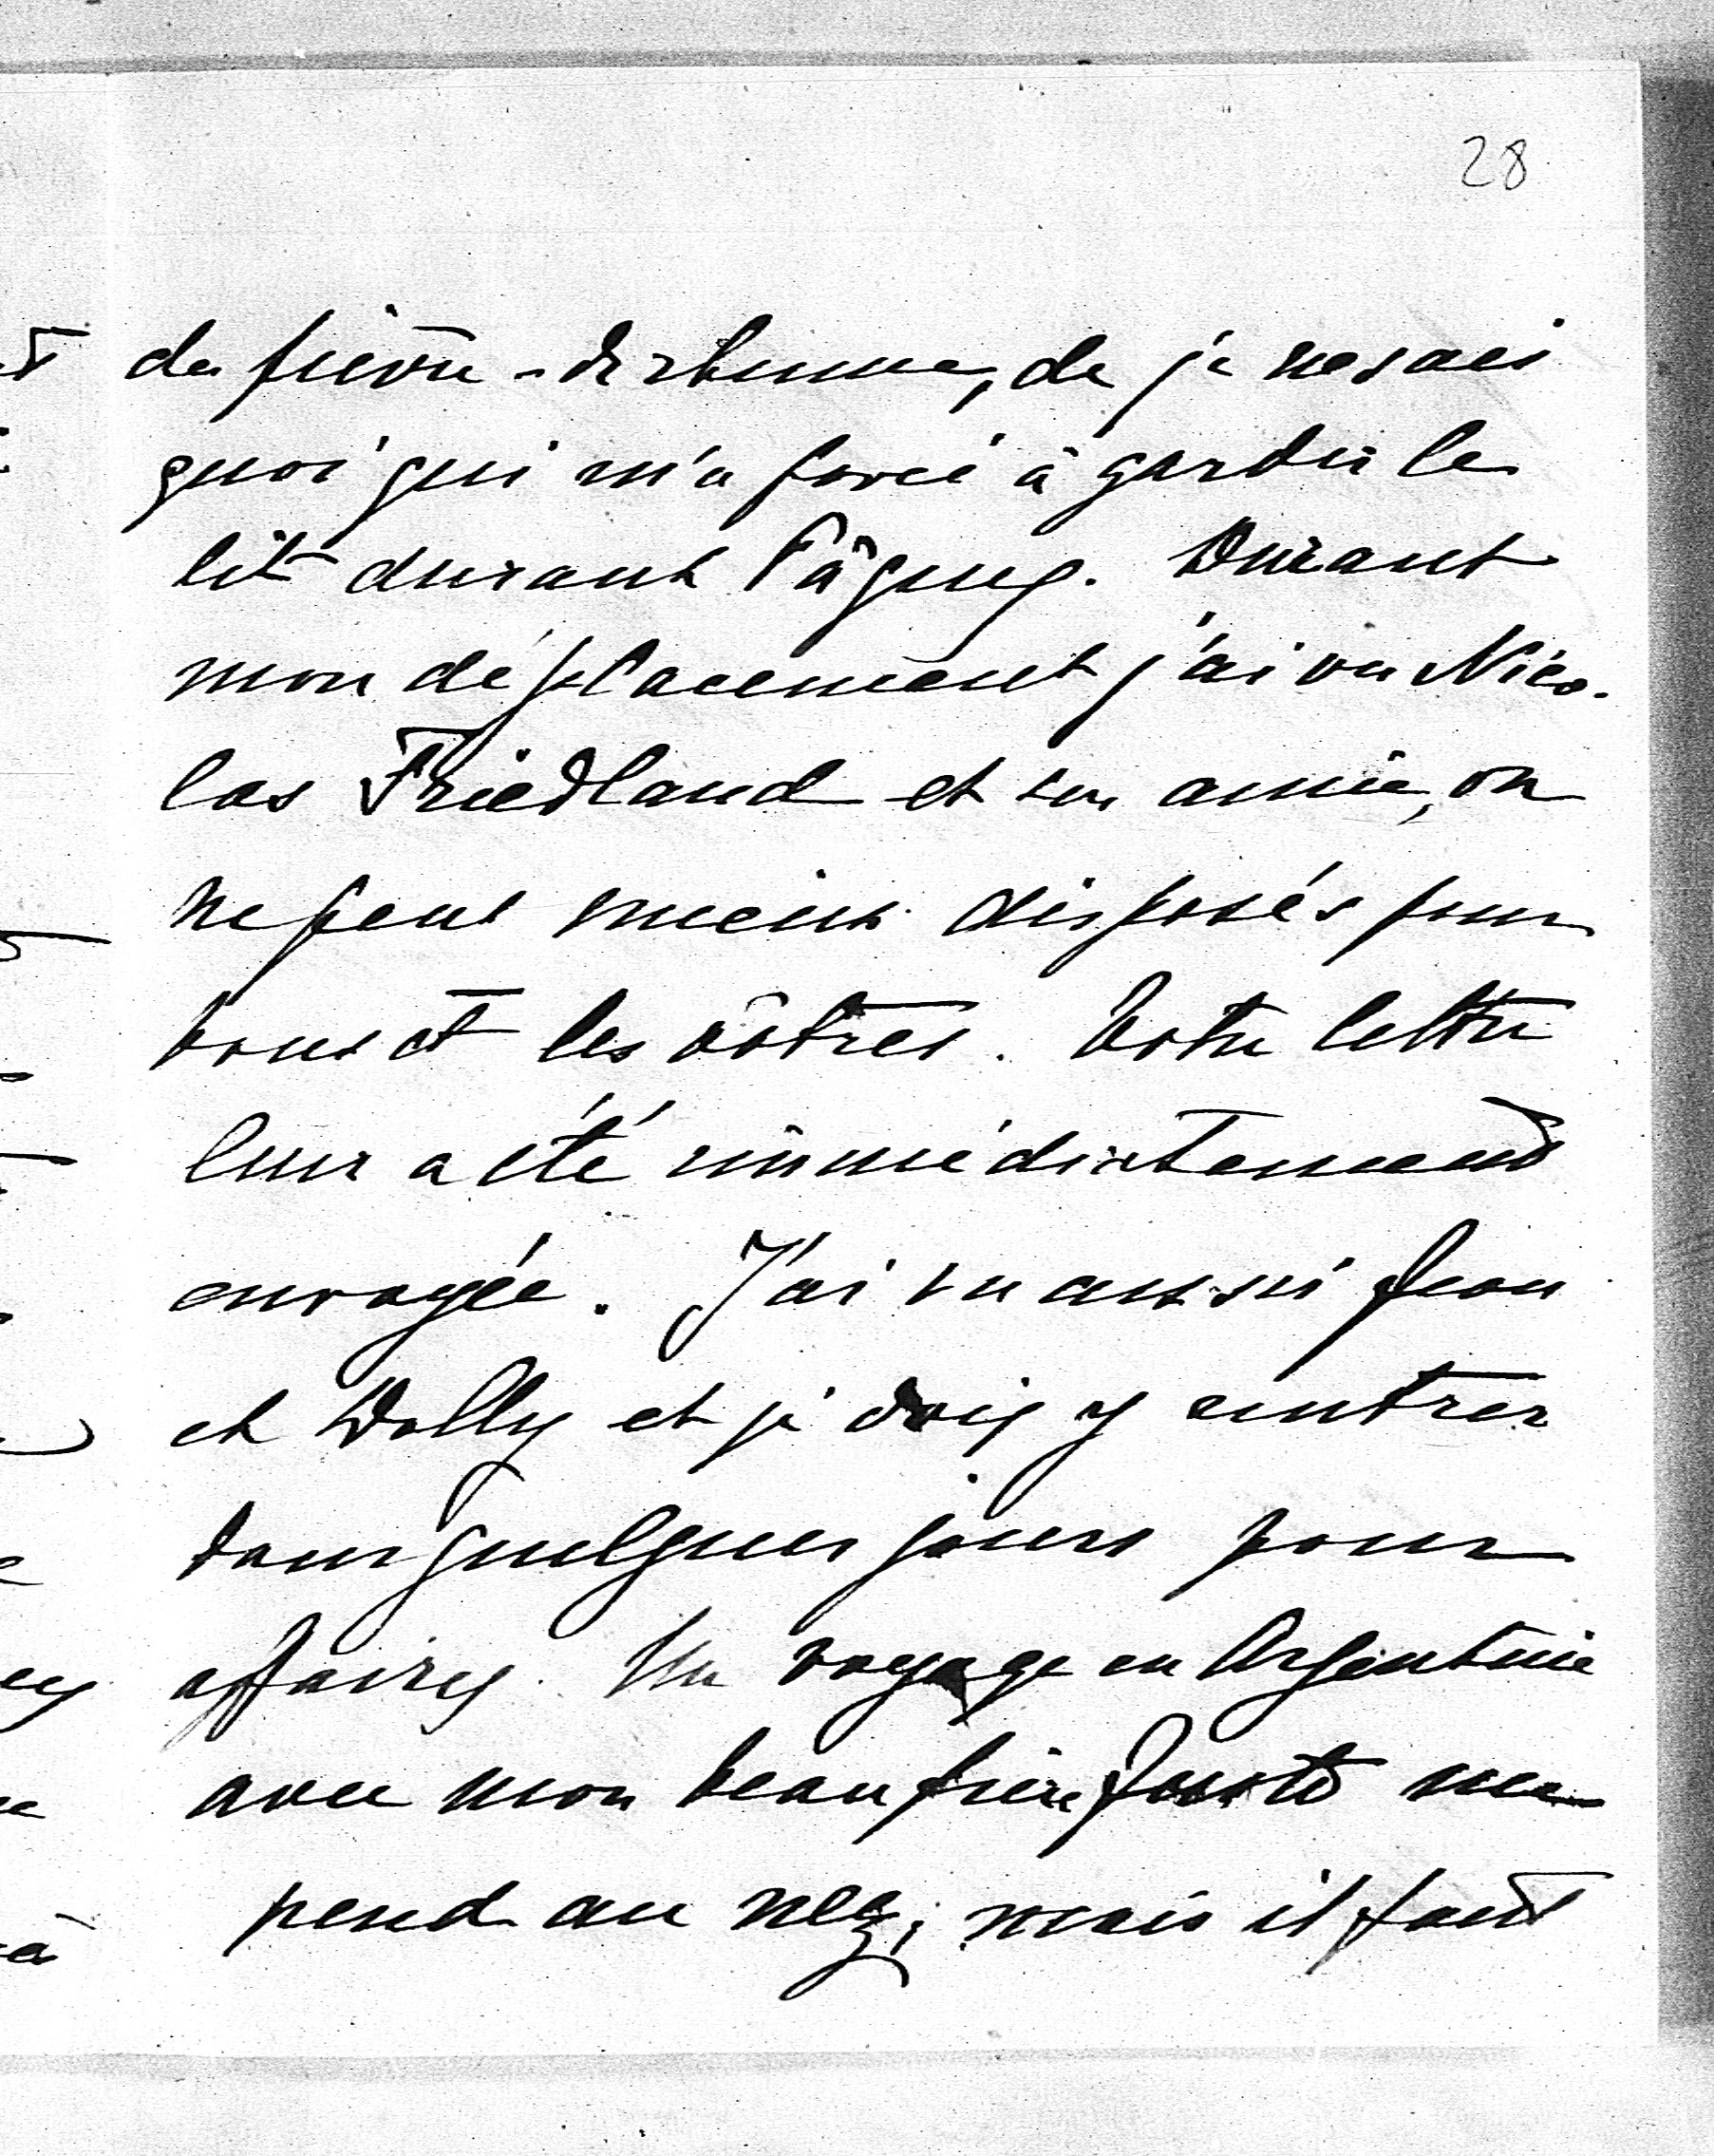 28
de fièvre - de rhume, de je ne sais
quoi qui m'a forcé à garder le
lit durant Pâques. Durant
mon déplacement j'ai vu Nico-
las Friedland et son amie, on
ne peut mieux disposés pour
vous et les vôtres. Votre lettre
leur a été immédiatement
envoyée. J'ai vu aussi Jean
et Dolly et je dois y rentrer
dans quelques jours pour
affaires. Un voyage en Argentine
avec mon beau frère me
pend au nez; mais il faut